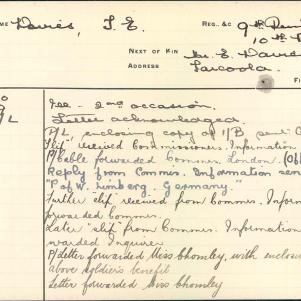 NAME Davies, T. E. REG., &C 9th Rein
10th
NEXT OF KIN Mr. E. Davies
ADDRESS Tarcoola.
Ice - 2nd occasion.
Letter acknowledged.
P/L, enclosing copy of I/B sent
Slip received Commissioners. Information
P/Cable forwarded Commsr. London.
Reply from Commsr. Information sen
"P of W. Limberg. Germany."
Further slip received from Commsr. Infor
forwarded Commsr.
Later "slip" from Commsr. Information
warded Inquirer.
P/Letter forwarded Miss Chomley, with enclosu
above soldier's benefit
Letter forwarded Miss Chomley